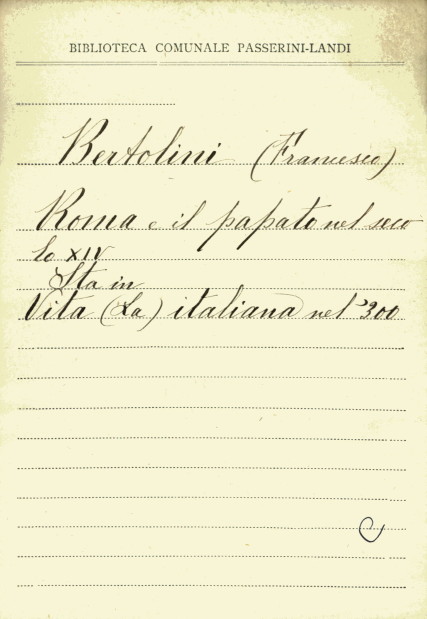 BIBLIOTECA COMUNALE PASSERINI-LANDI
Bertolini (Francesco)
Roma e il papato nel seco
lo XIV
Sta in
Vita (La) italiana nel '300